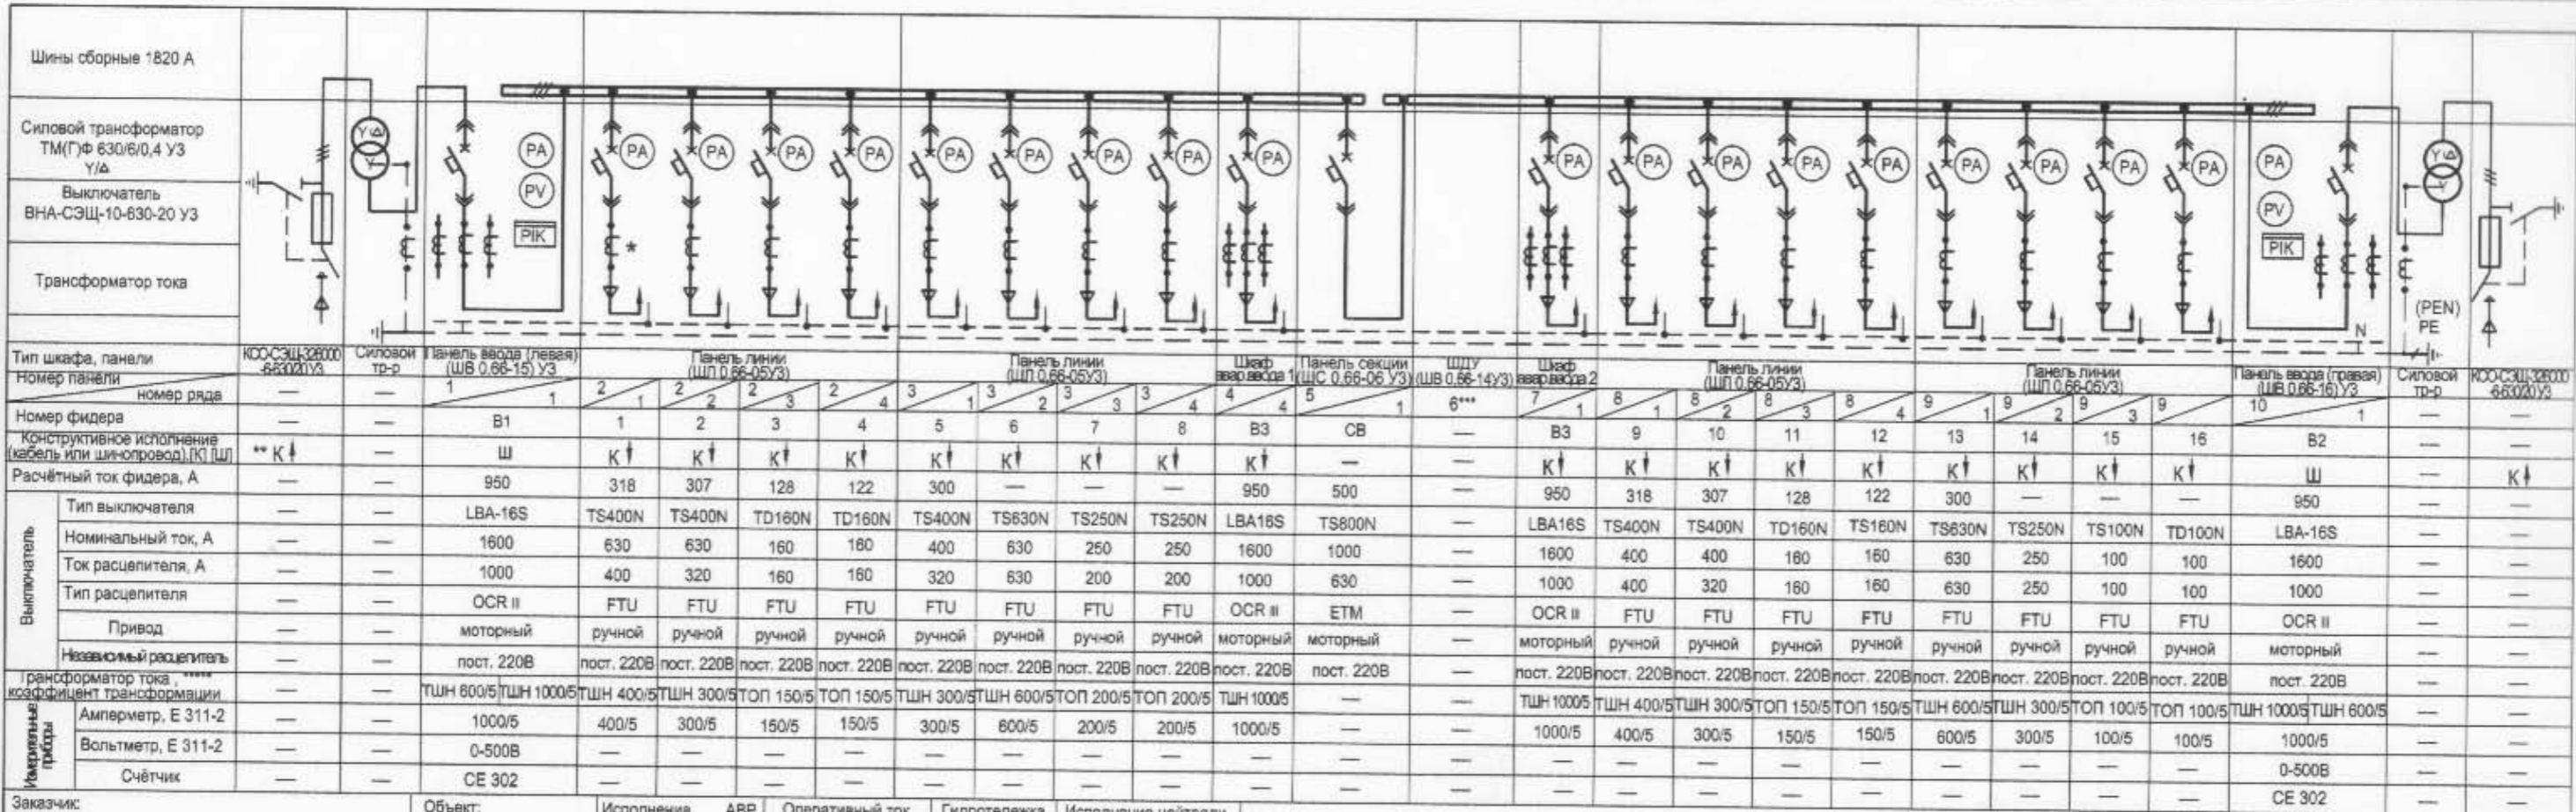 Шины сборные 1820 А
Силовой трансформатор
ТМ(Г)Ф 630/6/0,4 У3
Y/Δ
Выключатель
ВНА-СЭЩ-10-630-20 У3
Трансформатор тока
Y Δ Y PA PV PIK PA * PA PA PA PA PA PA PA PA PA PA PA PA PA PA PA PA PA PA PA PV PIK Y Δ Y
(PEN)
PE
N
Тип шкафа, панели
КСО-СЭЩ-326000
-6-630/20 У3
Силовой
тр-р
Панель ввода (левая)
(ШВ 0,66-15) У3
Панель линии
(ШЛ 0,66-05У3)
Панель линии
(ШЛ 0,66-05У3)
Шкаф
авар.ввода 1
Панель секции
(ШС 0,66-06 У3)
ШДУ
(ШВ 0,66-14У3)
Шкаф
авар.ввода 2
Панель линии
(ШЛ 0,66-05У3)
Панель линии
(ШЛ 0,66-05У3)
Панель ввода (правая)
(ШВ 0,66-16) У3
Силовой
тр-р
КСО-СЭЩ-326000
-6-630/20 У3
Номер панели
номер ряда
— — 1 1 2 1 2 2 2 3 2 4 3 1 3 2 3 3 3 4 4 4 5 1 6*** 7 1 8 1 8 2 8 3 8 4 9 1 9 2 9 3 9 10 1 — —
Номер фидера — — В1 1 2 3 4 5 6 7 8 В3 СВ — В3 9 10 11 12 13 14 15 16 В2 — —
Конструктивное исполнение
(кабель или шинопровод),[К] [Ш]
** К — Ш К К К К К К К К К — — К К К К К К К К К Ш — К
Расчётный ток фидера, А — — 950 318 307 128 122 300 — — — 950 500 — 950 318 307 128 122 300 — — — 950 —
Выключатель
Тип выключателя — — LBA-16S TS400N TS400N TD160N TD160N TS400N TS630N TS250N TS250N LBA16S TS800N — LBA16S TS400N TS400N TD160N TS160N TS630N TS250N TS100N TD100N LBA-16S — —
Номинальный ток, А — — 1600 630 630 160 160 400 630 250 250 1600 1000 — 1600 400 400 160 160 630 250 100 100 1600 — —
Ток расцепителя, А — — 1000 400 320 160 160 320 630 200 200 1000 630 — 1000 400 320 160 160 630 250 100 100 1000 — —
Тип расцепителя — — OCR II FTU FTU FTU FTU FTU FTU FTU FTU OCR II ETM — OCR II FTU FTU FTU FTU FTU FTU FTU FTU OCR II — —
Привод — — моторный ручной ручной ручной ручной ручной ручной ручной ручной моторный моторный — моторный ручной ручной ручной ручной ручной ручной ручной ручной моторный — —
Независимый расцепитель — — пост. 220В пост. 220В пост. 220В пост. 220В пост. 220В пост. 220В пост. 220В пост. 220В пост. 220В пост. 220В пост. 220В — пост. 220В пост. 220В пост. 220В пост. 220В пост. 220В пост. 220В пост. 220В пост. 220В пост. 220В пост. 220В — —
Трансформатор тока , *****
коэффицент трансформации
— — ТШН 600/5 ТШН 1000/5 ТШН 400/5 ТШН 300/5 ТОП 150/5 ТОП 150/5 ТШН 300/5 ТШН 600/5 ТОП 200/5 ТОП 200/5 ТШН 1000/5 — — ТШН 1000/5 ТШН 400/5 ТШН 300/5 ТОП 150/5 ТОП 150/5 ТШН 600/5 ТШН 300/5 ТОП 100/5 ТОП 100/5 ТШН 1000/5 ТШН 600/5 — —
Измерительные
приборы
Амперметр, Е 311-2 — — 1000/5 400/5 300/5 150/5 150/5 300/5 600/5 200/5 200/5 1000/5 — — 1000/5 400/5 300/5 150/5 150/5 600/5 300/5 100/5 100/5 1000/5 — —
Вольтметр, Е 311-2 — — 0-500В — — — — — — — — — — — — — — — — — — — — 0-500В — —
Счётчик — — СЕ 302 — — — — — — — — — — — — — — — — — — — — СЕ 302 — —
Заказчик: Объект: Исполнение АВР Оперативный ток Гидротележка Исполнение нейтрали